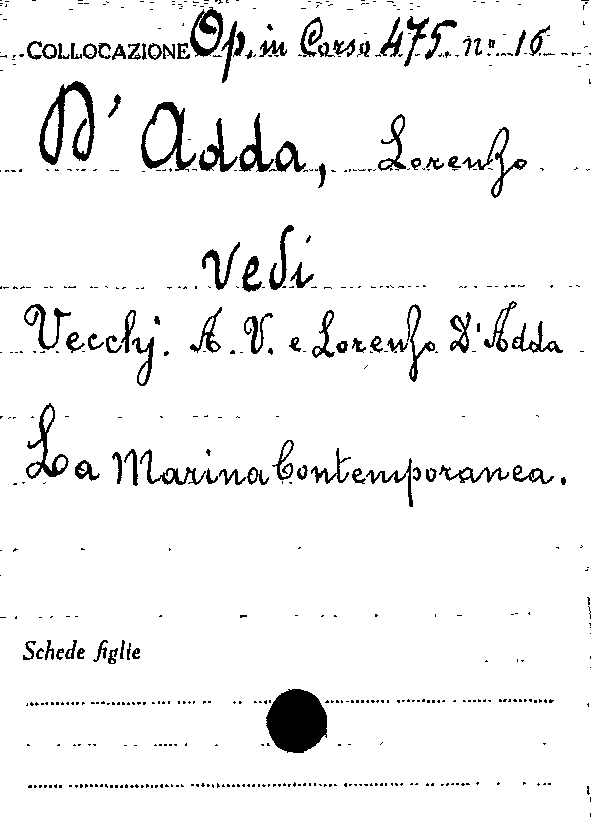 COLLOCAZIONE Op. in Corso 475. nº 16
D' Adda, Lorenzo
vedi
Vecchj. A. V. e Lorenzo D'Adda
La Marina Contemporanea.
Schede figlie